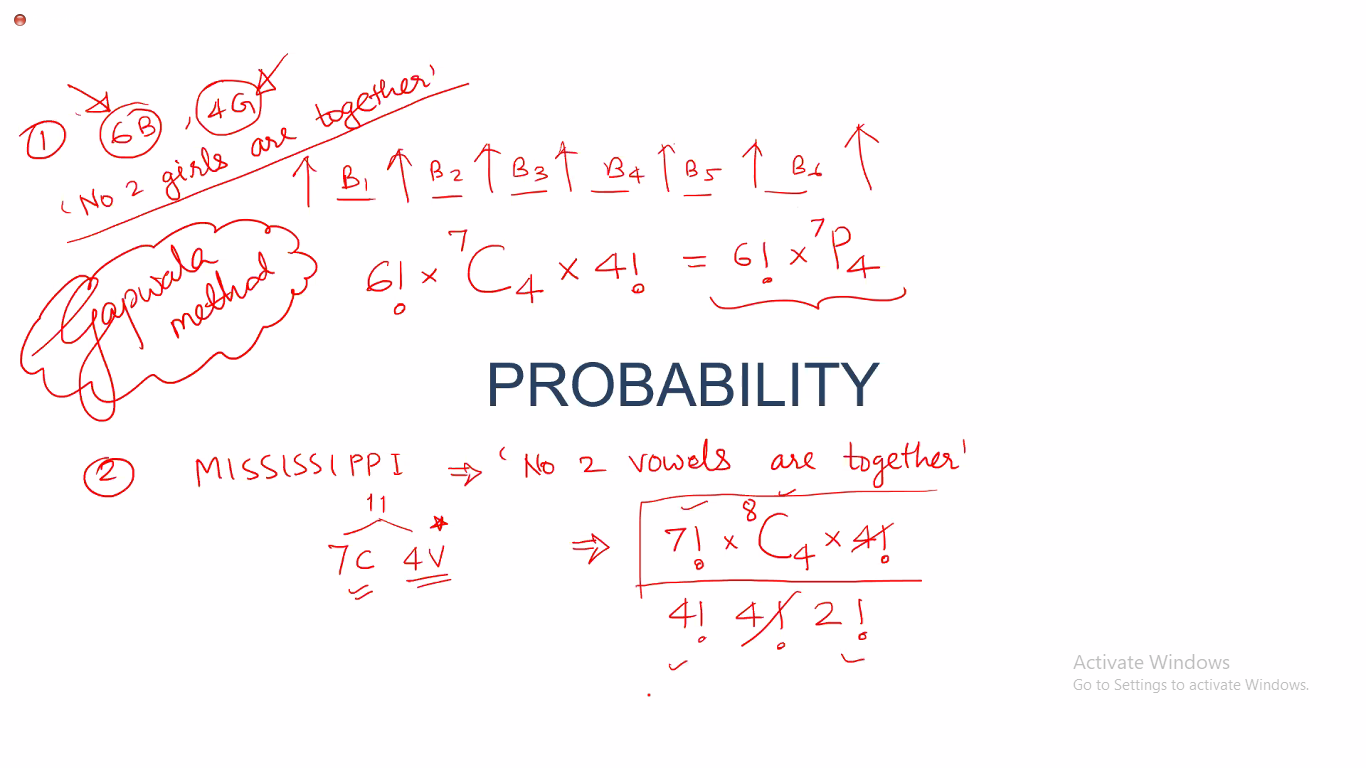 ① 6B , 4G
'No 2 girls are together'
↑ B₁ ↑ B₂ ↑ B₃ ↑ B₄ ↑ B₅ ↑ B₆ ↑
Gapwala
method
6! × ⁷C₄ × 4! = 6! × ⁷P₄
PROBABILITY
② MISSISSIPPI ⇒ 'No 2 vowels are together'
11
7C 4V
⇒ 7! × ⁸C₄ × 4!
4! 4! 2!
Activate Windows
Go to Settings to activate Windows.